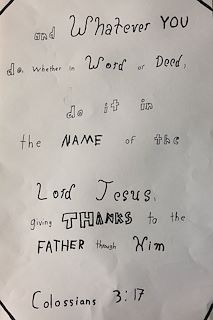 and Whatever YOU
do, whether in Word or Deed,
do it in
the NAME of the
Lord Jesus,
giving THANKS to the
FATHER through Him
Colossians 3:17